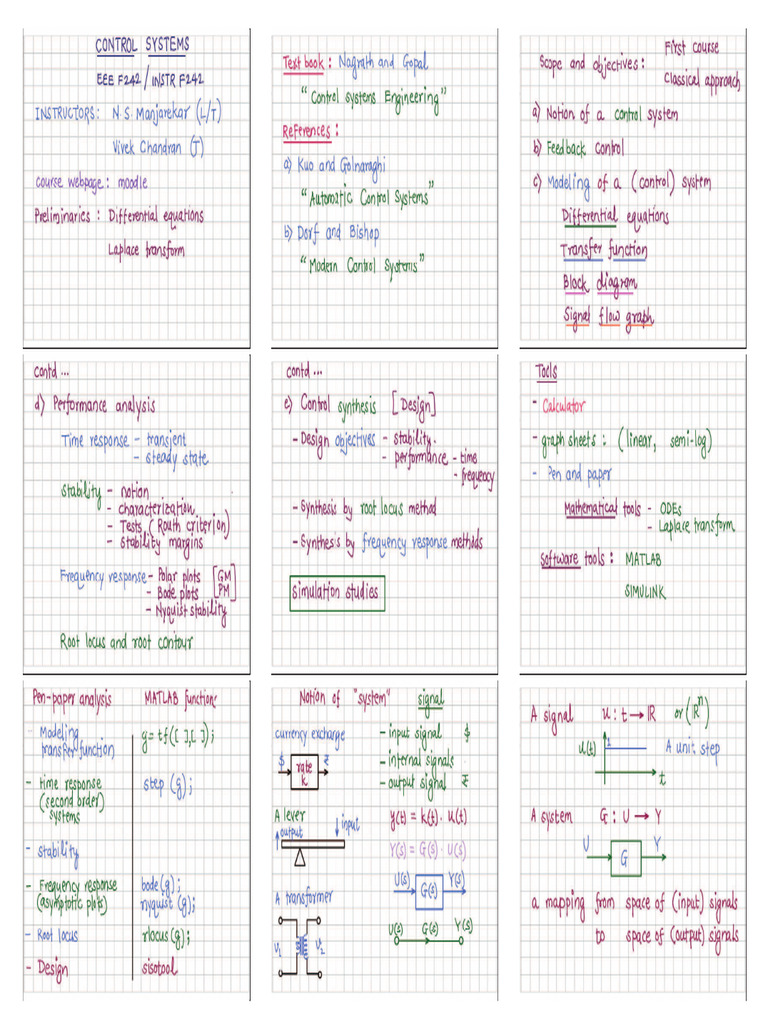 CONTROL SYSTEMS
EEE F242 / INSTR F242
INSTRUCTORS: N.S. Manjarekar (L/T)
Vivek Chandran (T)
course webpage: moodle
Preliminaries: Differential equations
Laplace transform
Text book: Nagrath and Gopal
"Control systems Engineering"
References:
a) Kuo and Golnaraghi
"Automatic Control Systems"
b) Dorf and Bishop
"Modern Control Systems"
First course
Scope and objectives:
Classical approach
a) Notion of a control system
b) Feedback control
c) Modeling of a (control) system
Differential equations
Transfer function
Block diagram
Signal flow graph
contd ...
d) Performance analysis
Time response - transient
- steady state
Stability - notion
- characterization
- Tests (Routh criterion)
- stability margins
Frequency response - Polar plots [GM
- Bode plots PM]
- Nyquist stability
Root locus and root contour
contd ...
e) Control synthesis [Design]
- Design objectives - stability.
- performance - time
- frequency
- Synthesis by root locus method
- Synthesis by frequency response methods
Simulation studies
Tools
- Calculator
- graph sheets: (linear, semi-log)
- Pen and paper
Mathematical tools - ODEs
- Laplace transform
Software tools: MATLAB
SIMULINK
Pen-paper analysis MATLAB function:
- Modeling
transfer function g = tf([ ],[ ]);
- time response step (g);
(second order)
systems
- stability
- Frequency response bode(g);
(asymptotic plots) nyquist (g);
- Root locus rlocus(g);
- Design sisotool
Notion of "system" signal
currency exchange - input signal $
$ rate k ₹ - internal signals
- output signal ₹
A lever y(t) = k(t). u(t)
output input
Y(s) = G(s) . U(s)
U(s) G(s) Y(s)
A transformer
V1 V2
U(s) G(s) Y(s)
A signal u: t → IR or (IRⁿ)
u(t) 1 A unit step
t
A system G: U → Y
U G Y
a mapping from space of (input) signals
to space of (output) signals